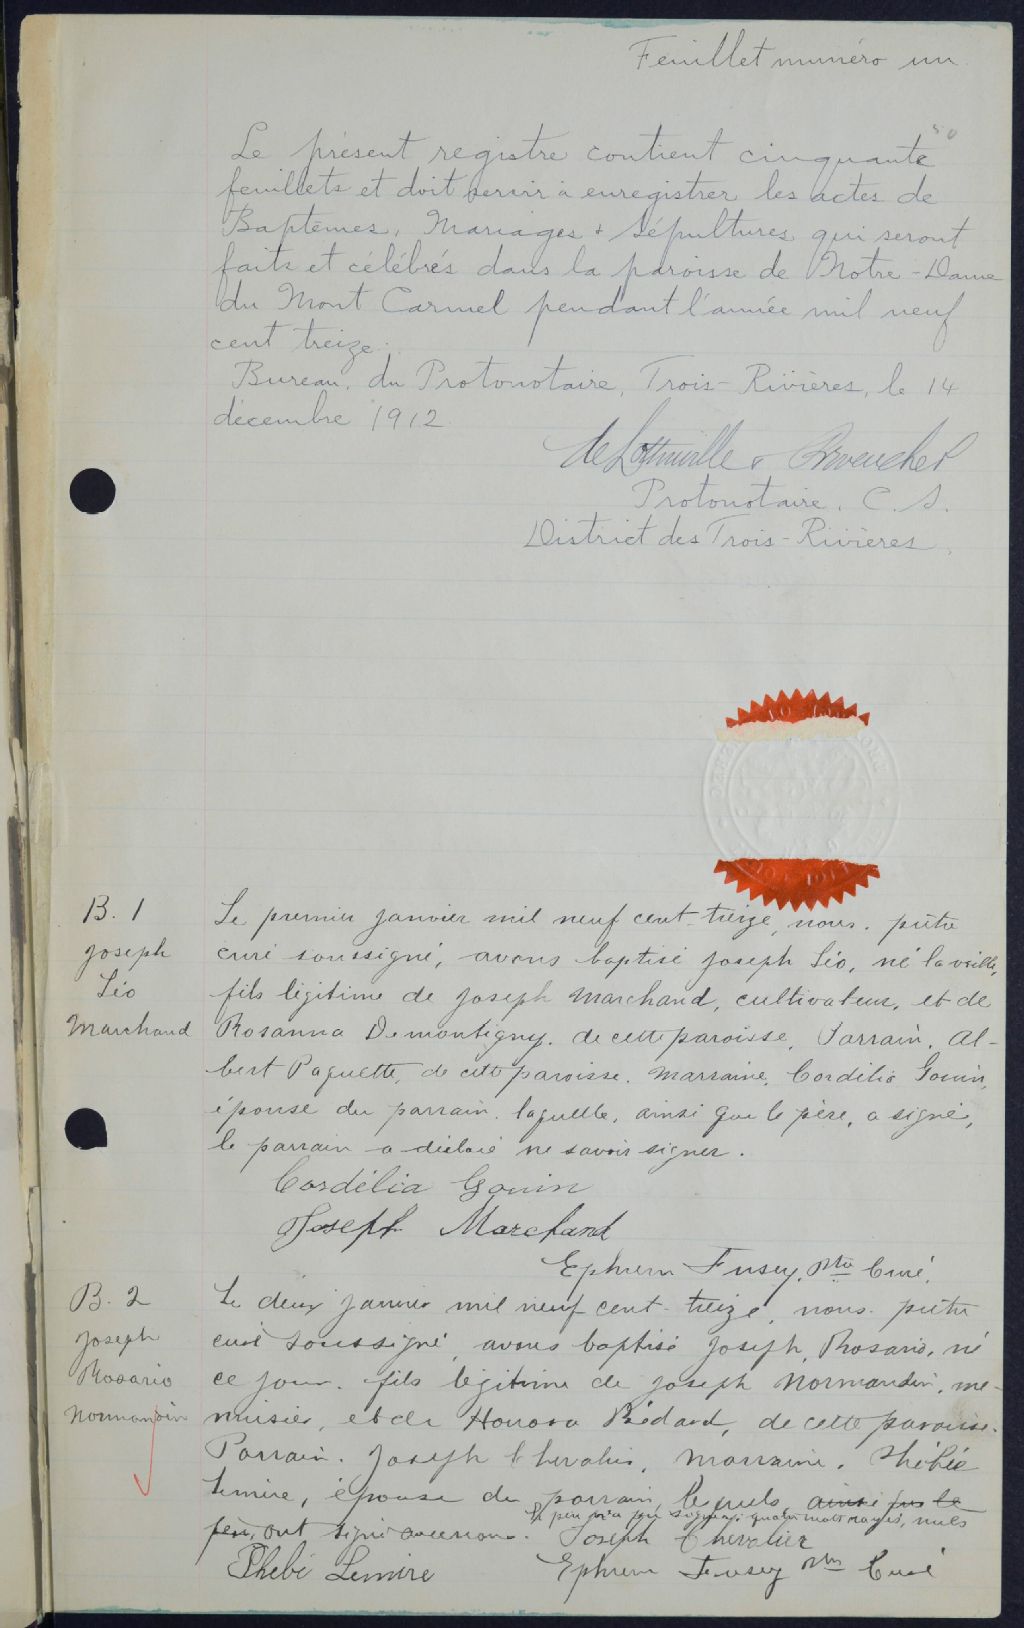 Feuillet numéro un.
50
Le présent registre contient cinquante
feuillets et doit servir à enregistrer les actes de
Baptêmes, Mariages & Sépultures qui seront
faits et célébrés dans la paroisse de Notre-Dame
du Mont Carmel pendant l'année mil neuf
cent treize.
Bureau du Protonotaire, Trois-Rivières, le 14
décembre 1912.
Protonotaire, C. S.
District des Trois-Rivières.
B. 1
Joseph
Léo
Marchand
Le premier janvier mil neuf cent treize, nous, prêtre
curé soussigné, avons baptisé Joseph Léo, né la veille,
fils légitime de Joseph Marchand, cultivateur, et de
Rosanna Demontigny, de cette paroisse. Parrain, Al-
bert Paquette, de cette paroisse. Marraine, Cordélia Gouin,
épouse du parrain, laquelle, ainsi que le père, a signé,
le parrain a déclaré ne savoir signer.
Cordélia Gouin
Joseph Marchand
Ephrem Fusey, Ptre Curé.
B. 2
Joseph
Rosario
Normandin
Le deux janvier mil neuf cent treize, nous, prêtre
curé soussigné, avons baptisé Joseph, Rosario, né
ce jour, fils légitime de Joseph Normandin, me-
nuisier, et de Honora Bédard, de cette paroisse.
Parrain, Joseph Chevalier, marraine, Phébée
Lemire, épouse du parrain, lesquels, ainsi que le
père, ont signé avec nous. Le père n'a pu signer. quatre mots rayés, nuls
Joseph Chevalier
Phebé Lemire
Ephrem Fusey Ptre Curé